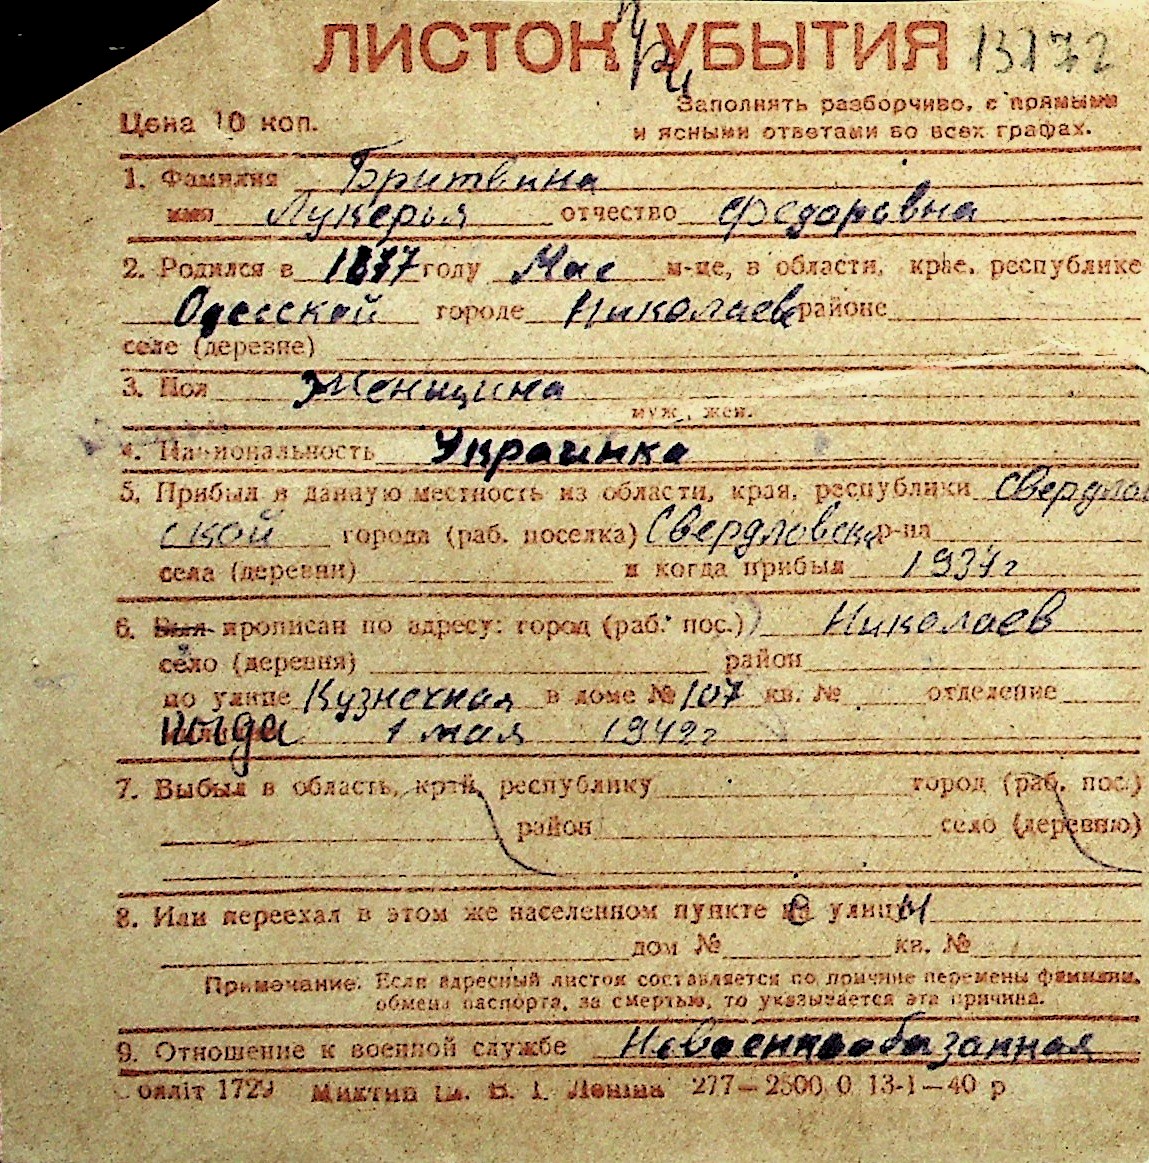 ЛИСТОК УБЫТИЯ 13172
Цена 10 коп.
Заполнять разборчиво, с прямыми
и ясными ответами во всех графах.
1. Фамилия Бритвина
имя Лукерья отчество Федоровна
2. Родился в 1877 году Мае м-це, в области, крае, республике
Одесской городе Николаев районе
селе (деревне)
3. Пол Женщина
муж., жен.
4. Национальность Украинка
5. Прибыл в данную местность из области, края, республики Свердлов
ской города (раб. поселка) Свердловска р-на
села (деревни) и когда прибыл 1934 г
6. Был прописан по адресу: город (раб. пос.) Николаев
село (деревня) район
по улице Кузнечная в доме № 107 кв. № отделение
когда 1 мая 1942 г
7. Выбыл в область, край, республику город (раб. пос.)
район село (деревню)
8. Или переехал в этом же населенном пункте с улицы
дом № кв. №
Примечание: Если адресный листок составляется по причине перемены фамилии,
обмена паспорта, за смертью, то указывается эта причина.
9. Отношение к военной службе Невоеннообязанная
1729 В. І. Леніна 277—2500 0 13-1—40 р